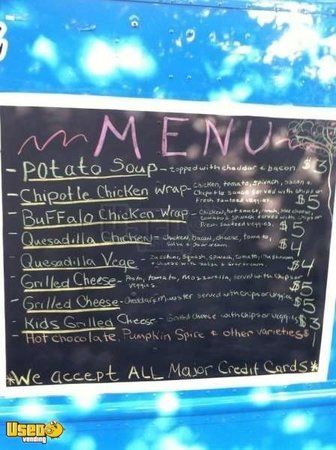 MENU
- Potato Soup - topped with cheddar & bacon. $3
- Chipotle Chicken Wrap - Chicken, tomato, spinach, bacon &
Chipotle sauce served with chips or $5
Fresh sauteed veggies.
- Buffalo Chicken Wrap - Chicken, hot sauce, cheese
spinach served with chips or $5
Fresh sauteed veggies.
- Quesadilla Chicken - Chicken, bacon, cheese, tomato, $4
salsa & sour cream
- Quesadilla Vege - Zucchini, squash, spinach, tomato,
cheese with salsa & sour cream $4
- Grilled Cheese - tomato, mozzarella, served with chips or
veggies. $5
- Grilled Cheese - cheddar, munster served with chips or veggies $5
- Kids Grilled Cheese - Grilled cheese with chips or veggies $3
- Hot chocolate, Pumpkin Spice & other varieties $1
*We accept ALL Major Credit Cards*
Used
vending